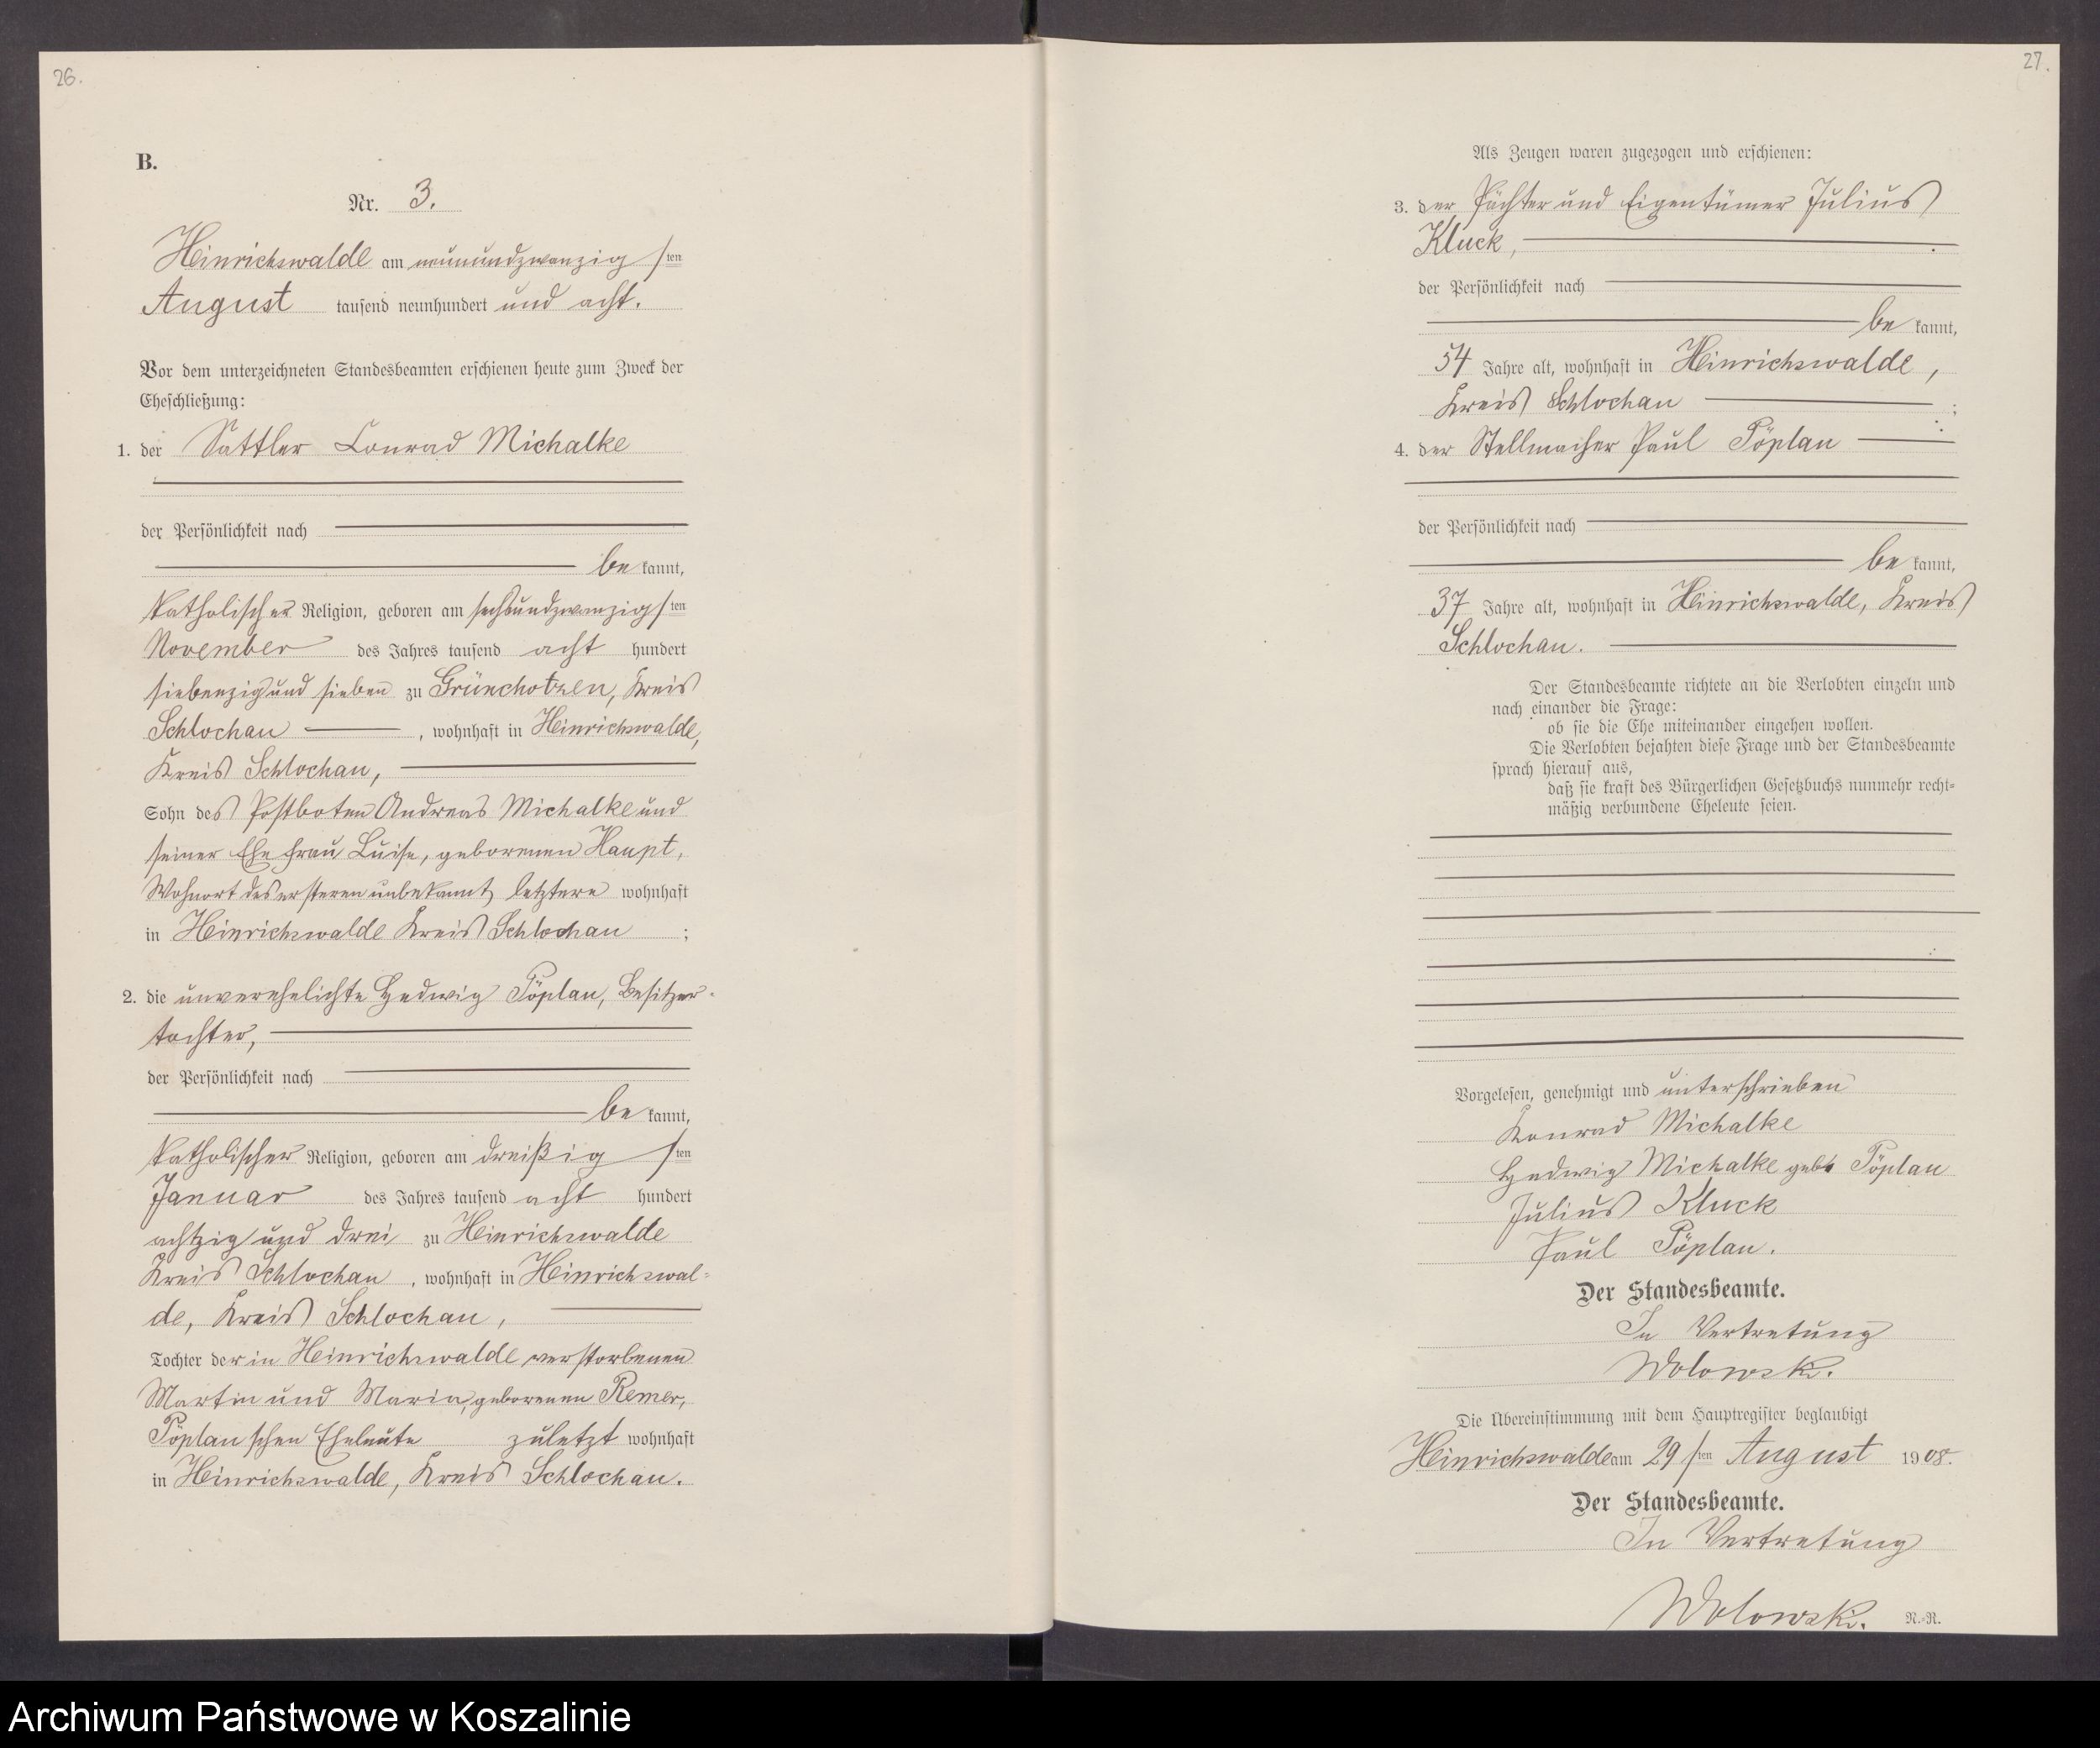 26.
B.
Nr. 3.
Heinrichswalde am neunundzwanzigsten
August tausend neunhundert und acht.
Vor dem unterzeichneten Standesbeamten erschienen heute zum Zweck der
Eheschließung:
1. der Sattler Conrad Michalke
der Persönlichkeit nach
be kannt,
katholischer Religion, geboren am sechsundzwanzigsten
November des Jahres tausend acht hundert
siebenzig und sieben zu Grünchotzen, Kreis
Schlochau , wohnhaft in Heinrichswalde,
Kreis Schlochau,
Sohn des Postboten Andreas Michalke und
seiner Ehefrau Luise, geborenen Haupt,
Wohnort des ersteren unbekannt, letztere wohnhaft
in Heinrichswalde Kreis Schlochau ;
2. die unverehelichte Hedwig Pöplau, Besitzer-
tochter,
der Persönlichkeit nach
be kannt,
katholischer Religion, geboren am dreißigsten
Januar des Jahres tausend acht hundert
achtzig und drei zu Heinrichswalde
Kreis Schlochau , wohnhaft in Heinrichswal-
de, Kreis Schlochau,
Tochter der in Heinrichswalde verstorbenen
Martin und Maria, geborenen Remer,
Pöplauschen Eheleute zuletzt wohnhaft
in Heinrichswalde, Kreis Schlochau.
27.
Als Zeugen waren zugezogen und erschienen:
3. der Pächter und Eigentümer Julius
Kluck,
der Persönlichkeit nach
be kannt,
54 Jahre alt, wohnhaft in Heinrichswalde,
Kreis Schlochau ;
4. der Stellmacher Paul Pöplau
der Persönlichkeit nach
be kannt,
37 Jahre alt, wohnhaft in Heinrichswalde, Kreis
Schlochau.
Der Standesbeamte richtete an die Verlobten einzeln und
nach einander die Frage:
ob sie die Ehe miteinander eingehen wollen.
Die Verlobten bejahten diese Frage und der Standesbeamte
sprach hierauf aus,
daß sie kraft des Bürgerlichen Gesetzbuchs nunmehr recht-
mäßig verbundene Eheleute seien.
Vorgelesen, genehmigt und unterschrieben
Konrad Michalke
Hedwig Michalke geb. Pöplau
Julius Kluck
Paul Pöplau.
Der Standesbeamte.
In Vertretung
Wolowski.
Die Übereinstimmung mit dem Hauptregister beglaubigt
Heinrichswalde am 29sten August 1908.
Der Standesbeamte.
In Vertretung
Wolowski. N.-R.
Archiwum Państwowe w Koszalinie